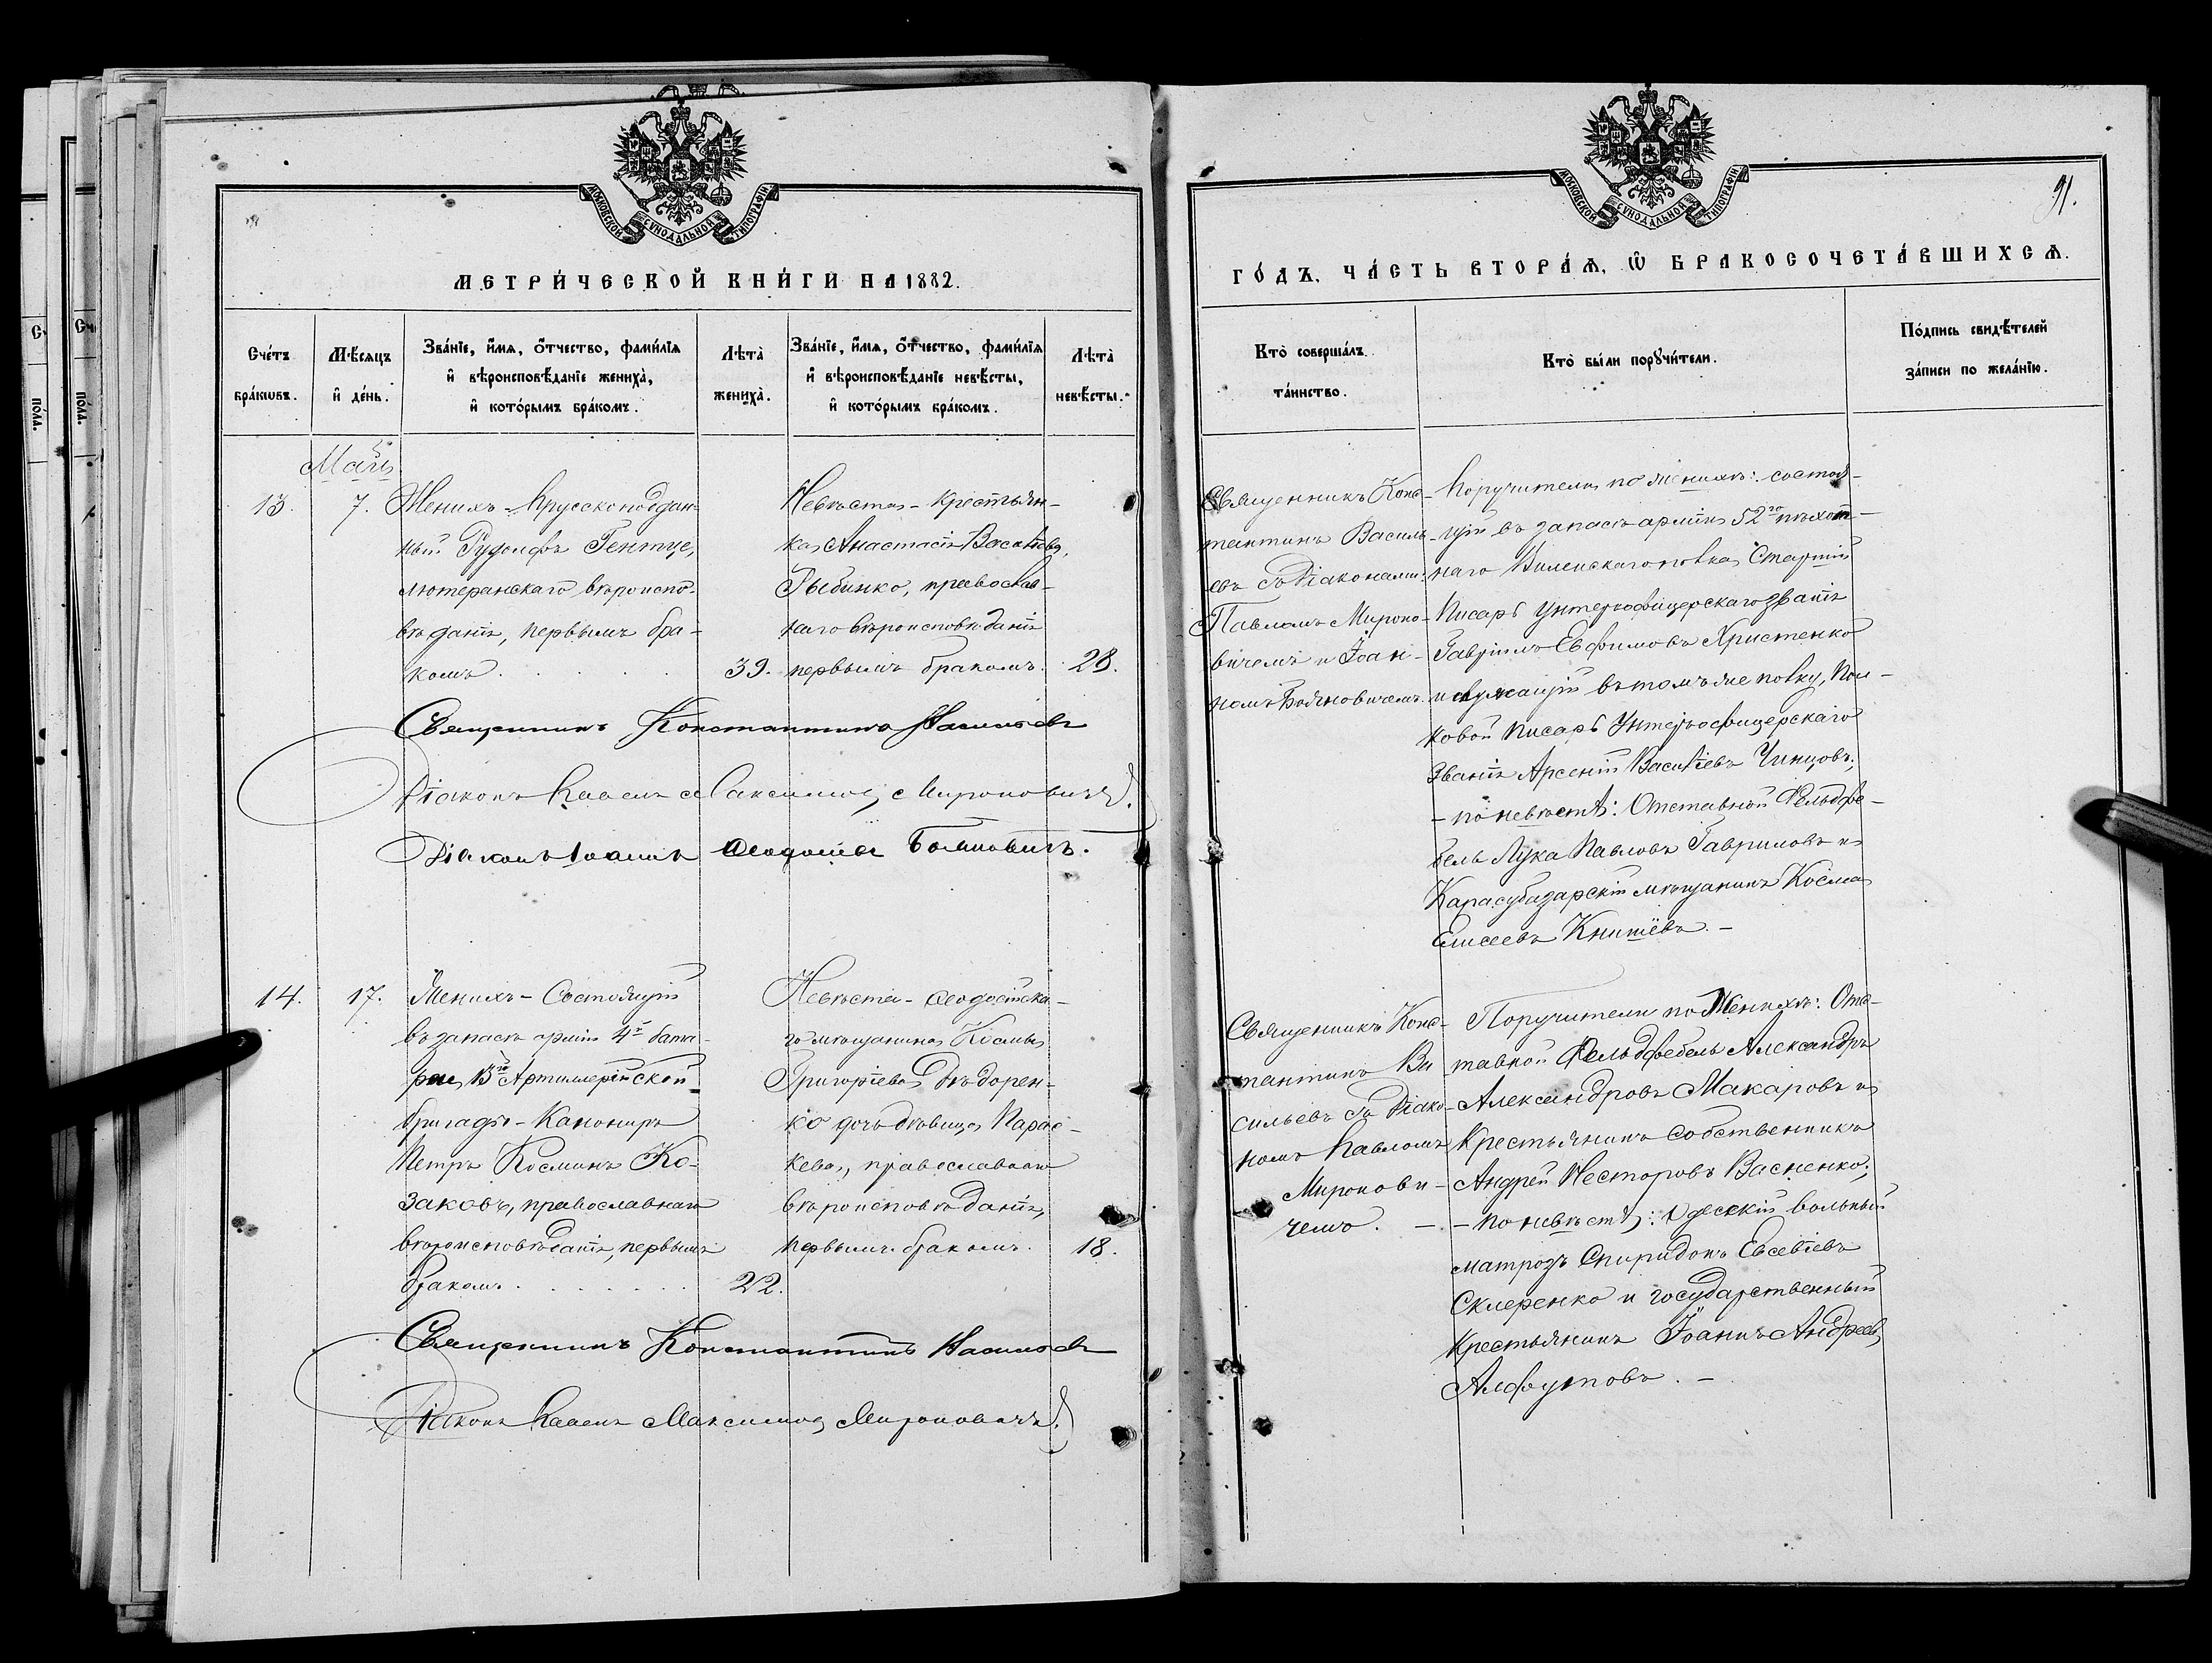 МОСКОВСКОЙ СУНОДАЛЬНОЙ ТИПОГРАФІИ
МЕТРИ́ЧЕСКОЙ КНИ́ГИ НА 1882.
Сче́тъ
бра́ковъ.
Мѣ́сяцъ
и҆ де́нь.
Зва́нїе, и҆́мя, ѻ҆́тчество, фами́лїя
и҆ вѣроисповѣ́данїе жениха̀,
и҆ кото́рымъ бра́комъ.
Лѣта̀
жениха̀.
Зва́нїе, и҆́мя, ѻ҆́тчество, фами́лїя
и҆ вѣроисповѣ́данїе невѣ́сты,
и҆ кото́рымъ бра́комъ.
Лѣта̀
невѣ́сты.
Май
13.
7.
Женихъ - Прусскоподдан-
ный Рудольфъ Гентце,
лютеранскаго вѣроиспо-
вѣданія, первымъ бра-
комъ.
39.
Невѣста - крестьян-
ка Анастасія Васильева
Рыбинко, православ-
наго вѣроисповѣданія
первымъ бракомъ.
28.
Священникъ Константинъ Васильевъ
Діаконъ Павелъ Максимов Мироновичъ.
Діаконъ Іоаннъ Ѳеодосіевъ Бояновичъ.
14.
17.
Женихъ - Состоящій
въ запасѣ арміи 4й бата-
реи 13й Артиллерійской
бригады - Канониръ
Петръ Косминъ Ко-
заковъ, православнаго
вѣроисповѣданія, первымъ
бракомъ.
22.
Невѣста - Ѳеодосійска-
го мѣщанина Космы
Григоріева Дѣдорен-
ко дочь дѣвица Парас-
кева, православнаго
вѣроисповѣданія,
первымъ бракомъ.
18.
Священникъ Константинъ Васильевъ
Діаконъ Павелъ Максимов Мироновичъ.
МОСКОВСКОЙ СУНОДАЛЬНОЙ ТИПОГРАФІИ
91.
ГО́ДЪ, ЧА́СТЬ ВТОРА́Ѧ, Ѡ҆ БРАКОСОЧЕТА́ВШИХСѦ.
Кто̀ соверша́лъ
та́инство.
Кто̀ бы́ли порꙋчи́тели.
По́дпись свидѣ́телей
за́писи по жела́нїю.
Священникъ Конс-
тантинъ Василь-
евъ съ Діаконами:
Павломъ Мироно-
вичемъ и Іоан-
номъ Бояновичемъ.
Поручители по женихѣ: состоя-
щій въ запасѣ арміи 52го пѣхот-
наго Виленскаго полка Старшій
Писарь унтерофицерскаго званія
Гавріилъ Евфимовъ Христенко
и служащій въ томъ же полку, Пол-
ковой писарь Унтерофицерскаго
званія Арсеній Васильевъ Чинцовъ;
- по невѣстѣ: Отставной Фельдфе-
бель Лука Павловъ Гавриловъ и
Карасубазарскій мѣщанинъ Косма
Елисеевъ Книшевъ. -
Священникъ Конс-
тантинъ Ва-
сильевъ съ Діако-
номъ Павломъ
Миронови-
чемъ. -
Поручители по Женихѣ: Отс-
тавной Фельдфебель Александръ
Александровъ Макаровъ и
Крестьянинъ собственникъ
Андрей Несторовъ Васненко;
- по невѣстѣ: Одесскій вольный
матрозъ Спиридонъ Евсевіевъ
Склеренко и государственный
Крестьянинъ Іоаннъ Андреевъ
Алфутовъ. -